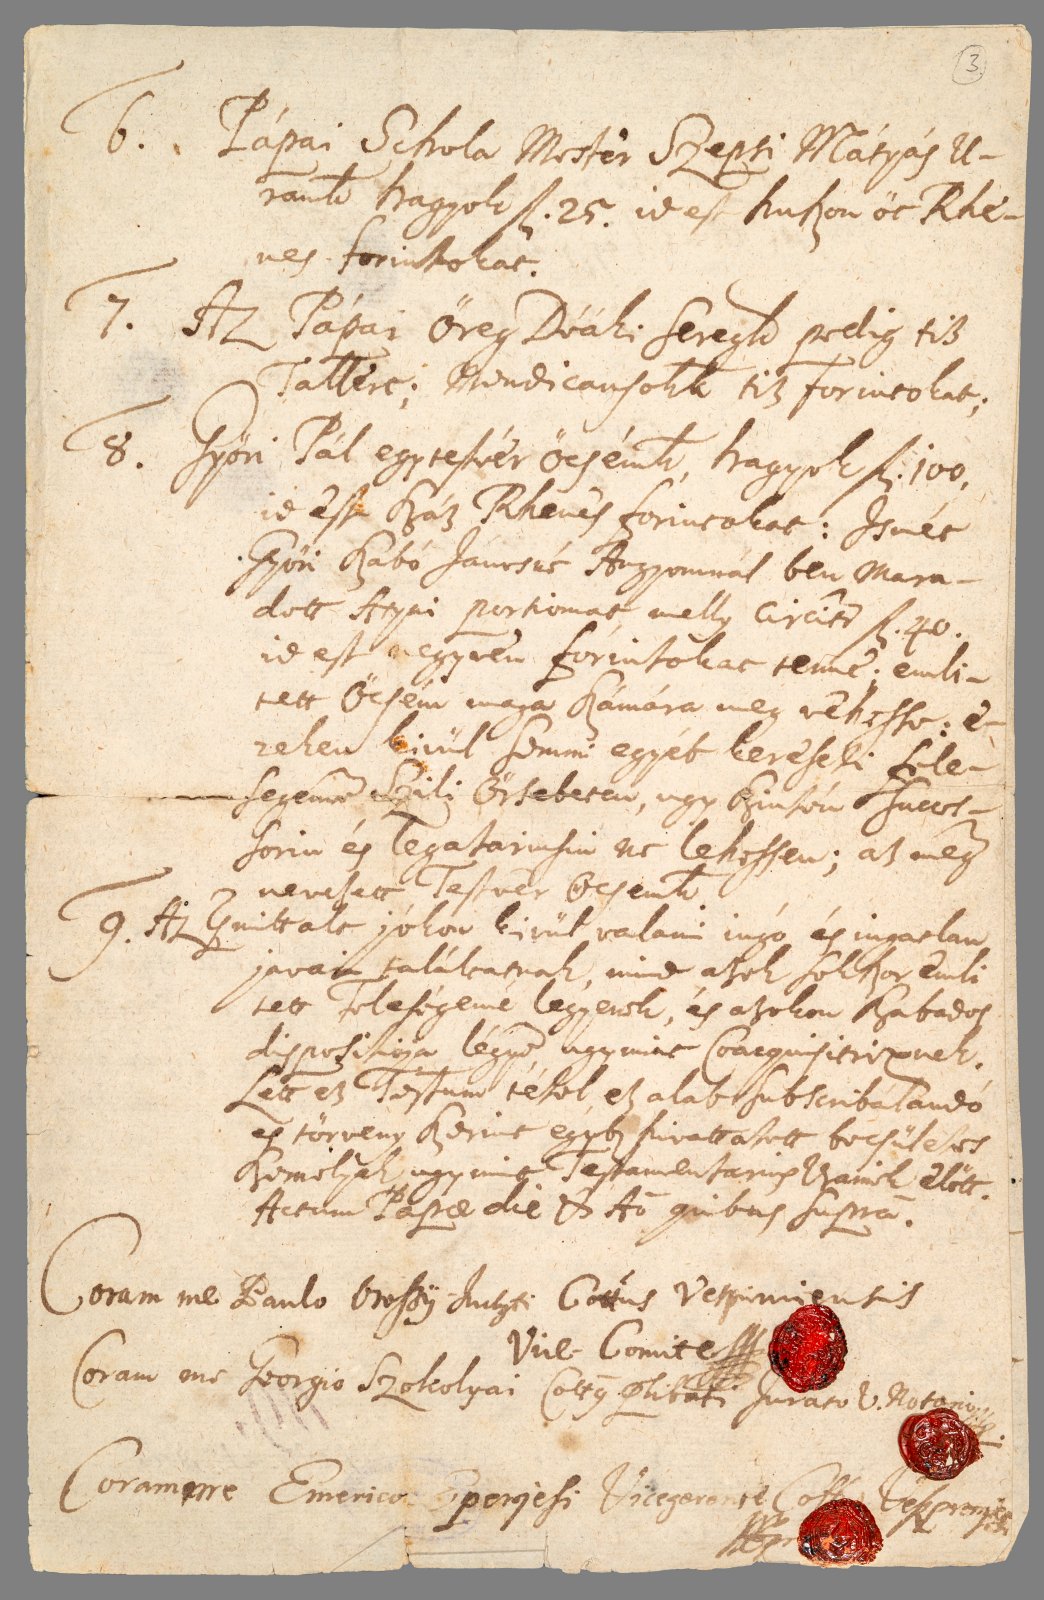 3.
6. Pápai Schola Mester Szepsi Mátyás U-
ramk hagyok fl. 25. id est huszon öt Rhe-
nes forintokat.
7. Az Pápai Öreg Deáki seregk pedig tiz
Tallért; Mendicansokk tiz forintokat;
8. Győri Pál egytestvér Öcsémk, hagyok fl. 100,
id est száz Rhenes forintokat: Ismét
Győri Szabó Jánosné Angyomnál ben mara-
dott Atyai portiomat, melly circiter fl. 40.
id est negyven forintokat tenne; emli-
tett Öcsém maga számára meg vehesse: e-
zeken kivül semmi egyéb kereseti fele-
segemen Szili Örsebeten, ugy szintén Succes-
sorin és legatariusin ne lehessen; az meg
nevezett Testvér Öcsémk
9. Az it valami ingó és ingatlan
javaim találtatnak, mind azok sokszor emli
tett feleségemé legyenek, és azokon szabados
dispositioja légyen, ugymint Coacquisitrixnek.
Lett ez Testum tétel, ez aláb subscribálandó
és törveny szerint egybe hivattatott böcsületes
személyek, ugymint Testamentarius Uraimék előtt.
Actum Papæ die & Ao quibus supra.
Coram me Paulo Oroszy Inclyti Cottus Vesprimiensis
Vice Comite
Coram me Georgio Szokolyai Cottus Jurato V. Notario
Coram me Emerico Eperjesi Vicegerente Cottus Veszpremiensis